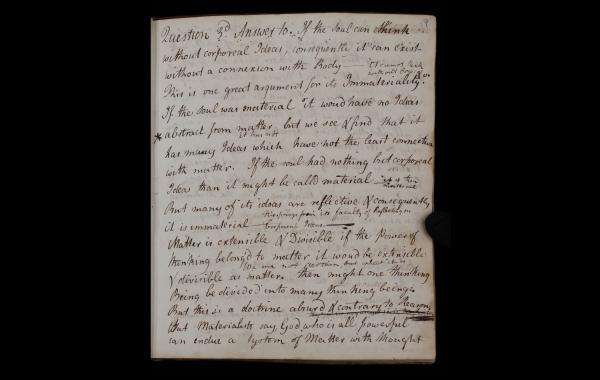 Question 3d Answer to. If the Soul can think
without corporeal Ideas, consequently it can exist
without a connexion with Body
This is one great argument for its Immateriality.
If the soul was material it woud have no Ideas
* abstract from matter, but we see & find that it
has many Ideas which have not the least connection
with matter. If the soul had nothing but corporeal
Ideas than it might be calld material
But many of its ideas are reflective & consequently
it is immaterial
Matter is extensible & Divisible if the Power of
thinking belong'd to matter it woud be extensible
& divisible as matter. then might one thinking
Being be divided into many thinking beings
But this is a doctrine absurd & contrary to Reason
But Materialists say God who is all powerful
can endue a System of Matter with thought